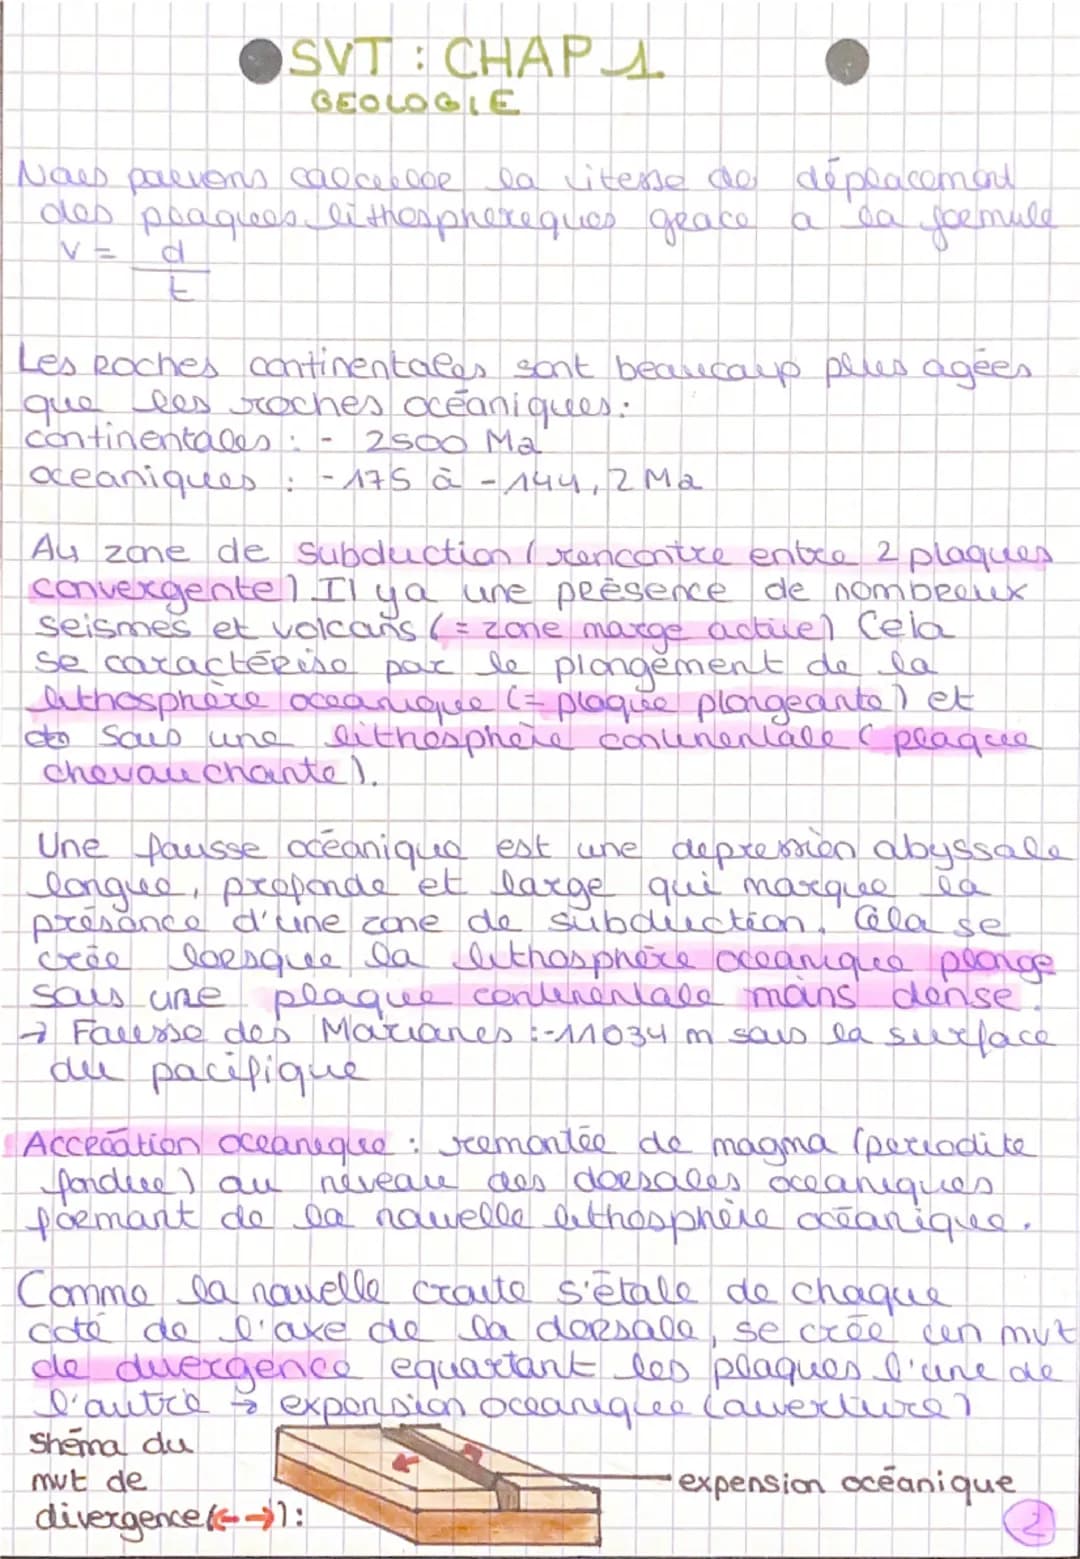 SVT : CHAP 1
GEOLOGIE
Nous pouvons calculer la vitesse de déplacement
des plaques lithosphereques grace a la formule
v = d
t
Les Roches continentales sont beaucoup plus agées
que les roches océaniques :
continentales : - 2500 Ma
oceaniques : -175 à -144,2 Ma
Au zone de subduction (rencontre entre 2 plaques
convergente) Il y a une présence de nombreux
seismes et volcans (= zone marge active) Cela
se caractérise par le plongement de la
lithosphère oceanique (= plaque plongeante) et
sous une lithosphère continentale (plaque
chevauchante).
Une fausse océanique est une depression abyssale
longue, profonde et large qui marque la
présance d'une zone de subduction. Cela se
crée lorsque la lithosphère oceanique plonge
sous une plaque continentale moins dense.
→ Fausse des Marianes :-11034 m sous la surface
du pacifique
Accréation oceanique : remontée de magma (periodite
fondue) au niveau des dorsales oceaniques
formant de la nouvelle lithosphère océanique.
Comme la nouvelle croute s'étale de chaque
coté de l'axe de la dorsale, se crée un mvt
de divergence equartant les plaques l'une de
l'autre → expension oceanique (ouverture)
Shéma du
mvt de
divergence(←→) :
expension océanique
2